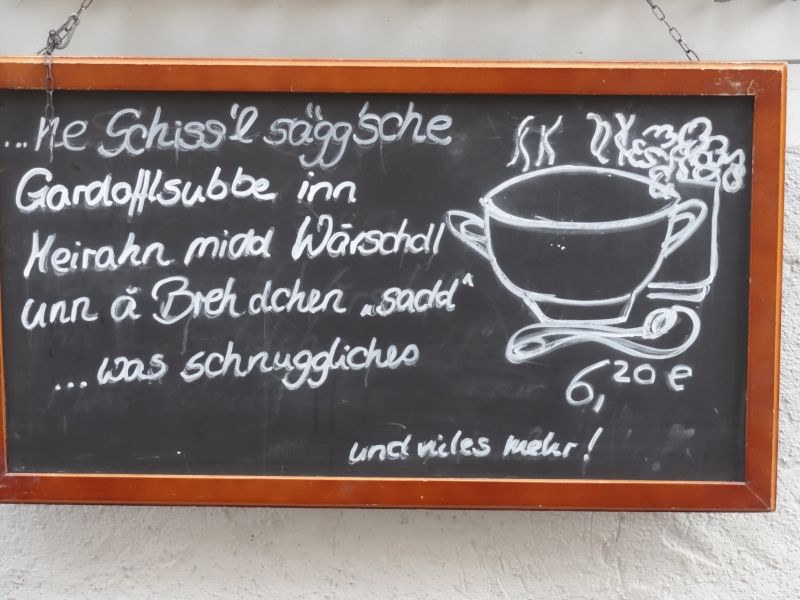 ...ne Schiss'l säggsche
Gardofflsubbe inn
Meirahn midd Wärschdl
unn ä Brehdchen „sadd“
...was schnuggliches
6,20 e
und viles mehr!